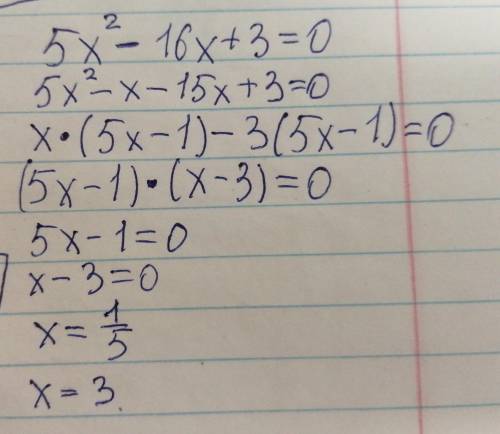 5x² - 16x + 3 = 0
5x² - x - 15x + 3 = 0
x · (5x - 1) - 3(5x - 1) = 0
(5x - 1) · (x - 3) = 0
5x - 1 = 0
x - 3 = 0
x = 1/5
x = 3